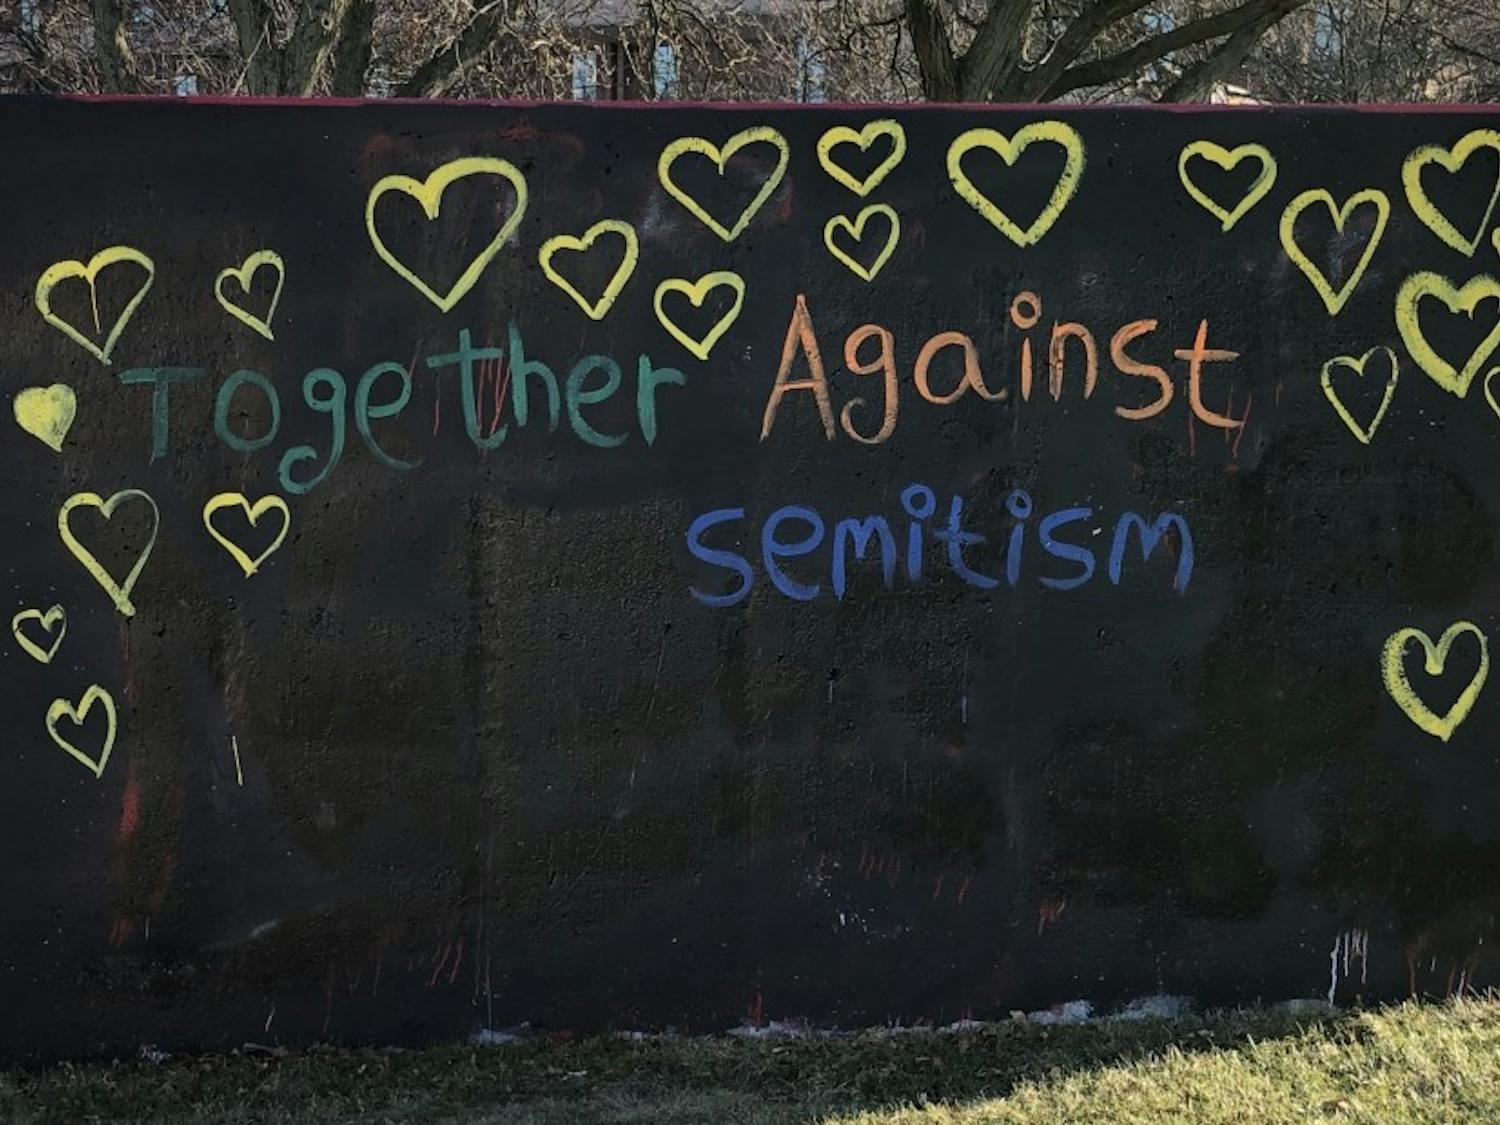 Together Against
semitism